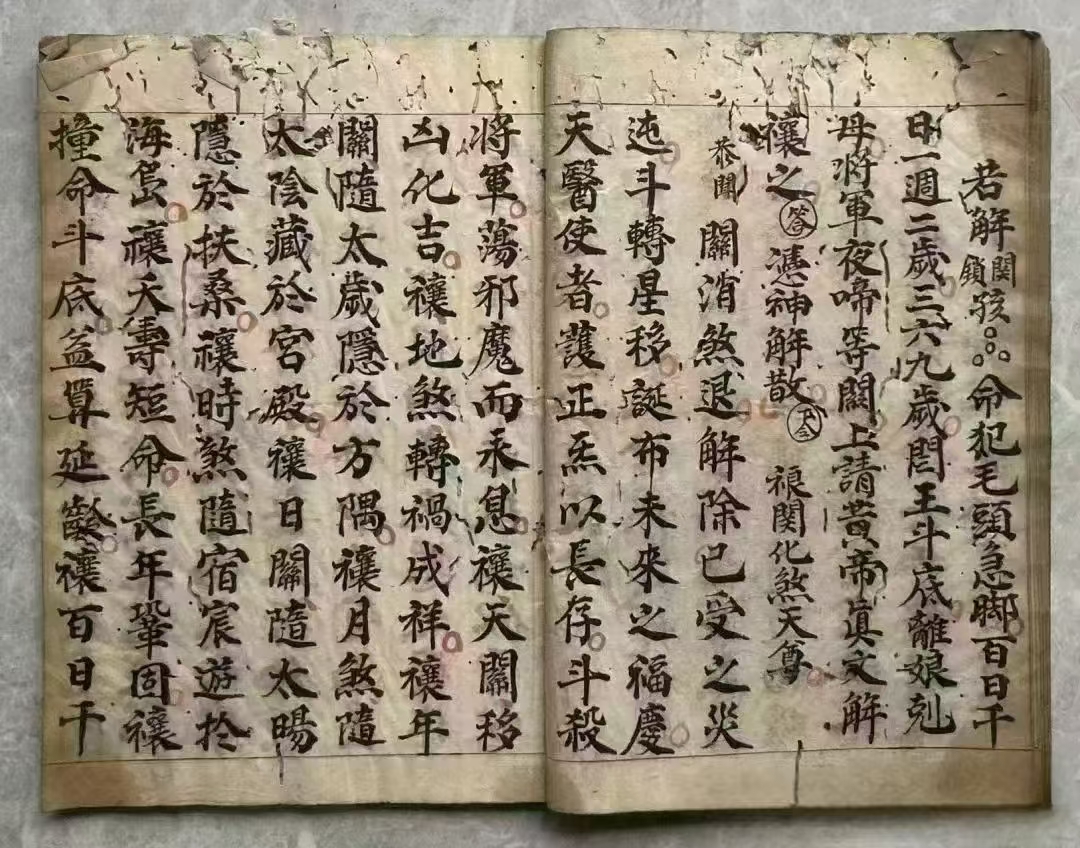 若解關鎖孩○○○○命犯毛頭急脚百日千
日一週二歲三六九歲閻王斗底離娘剋
母將軍夜啼等關上請黃帝真文解
禳之答憑神解散 禳関化煞天尊
恭聞 關消煞退解除已受之災
迍斗轉星移誕布未來之福慶
天醫使者護正炁以長存斗殺
將軍蕩邪魔而永息禳天關移
凶化吉禳地煞轉禍成祥禳年
關隨太歲隱於方隅禳月煞隨
太陰藏於宮殿禳日關隨太暘
隱於扶桑禳時煞隨宿宸遊扵
海島禳夭壽短命長年鞏固禳
撞命斗底益算延齡禳百日千